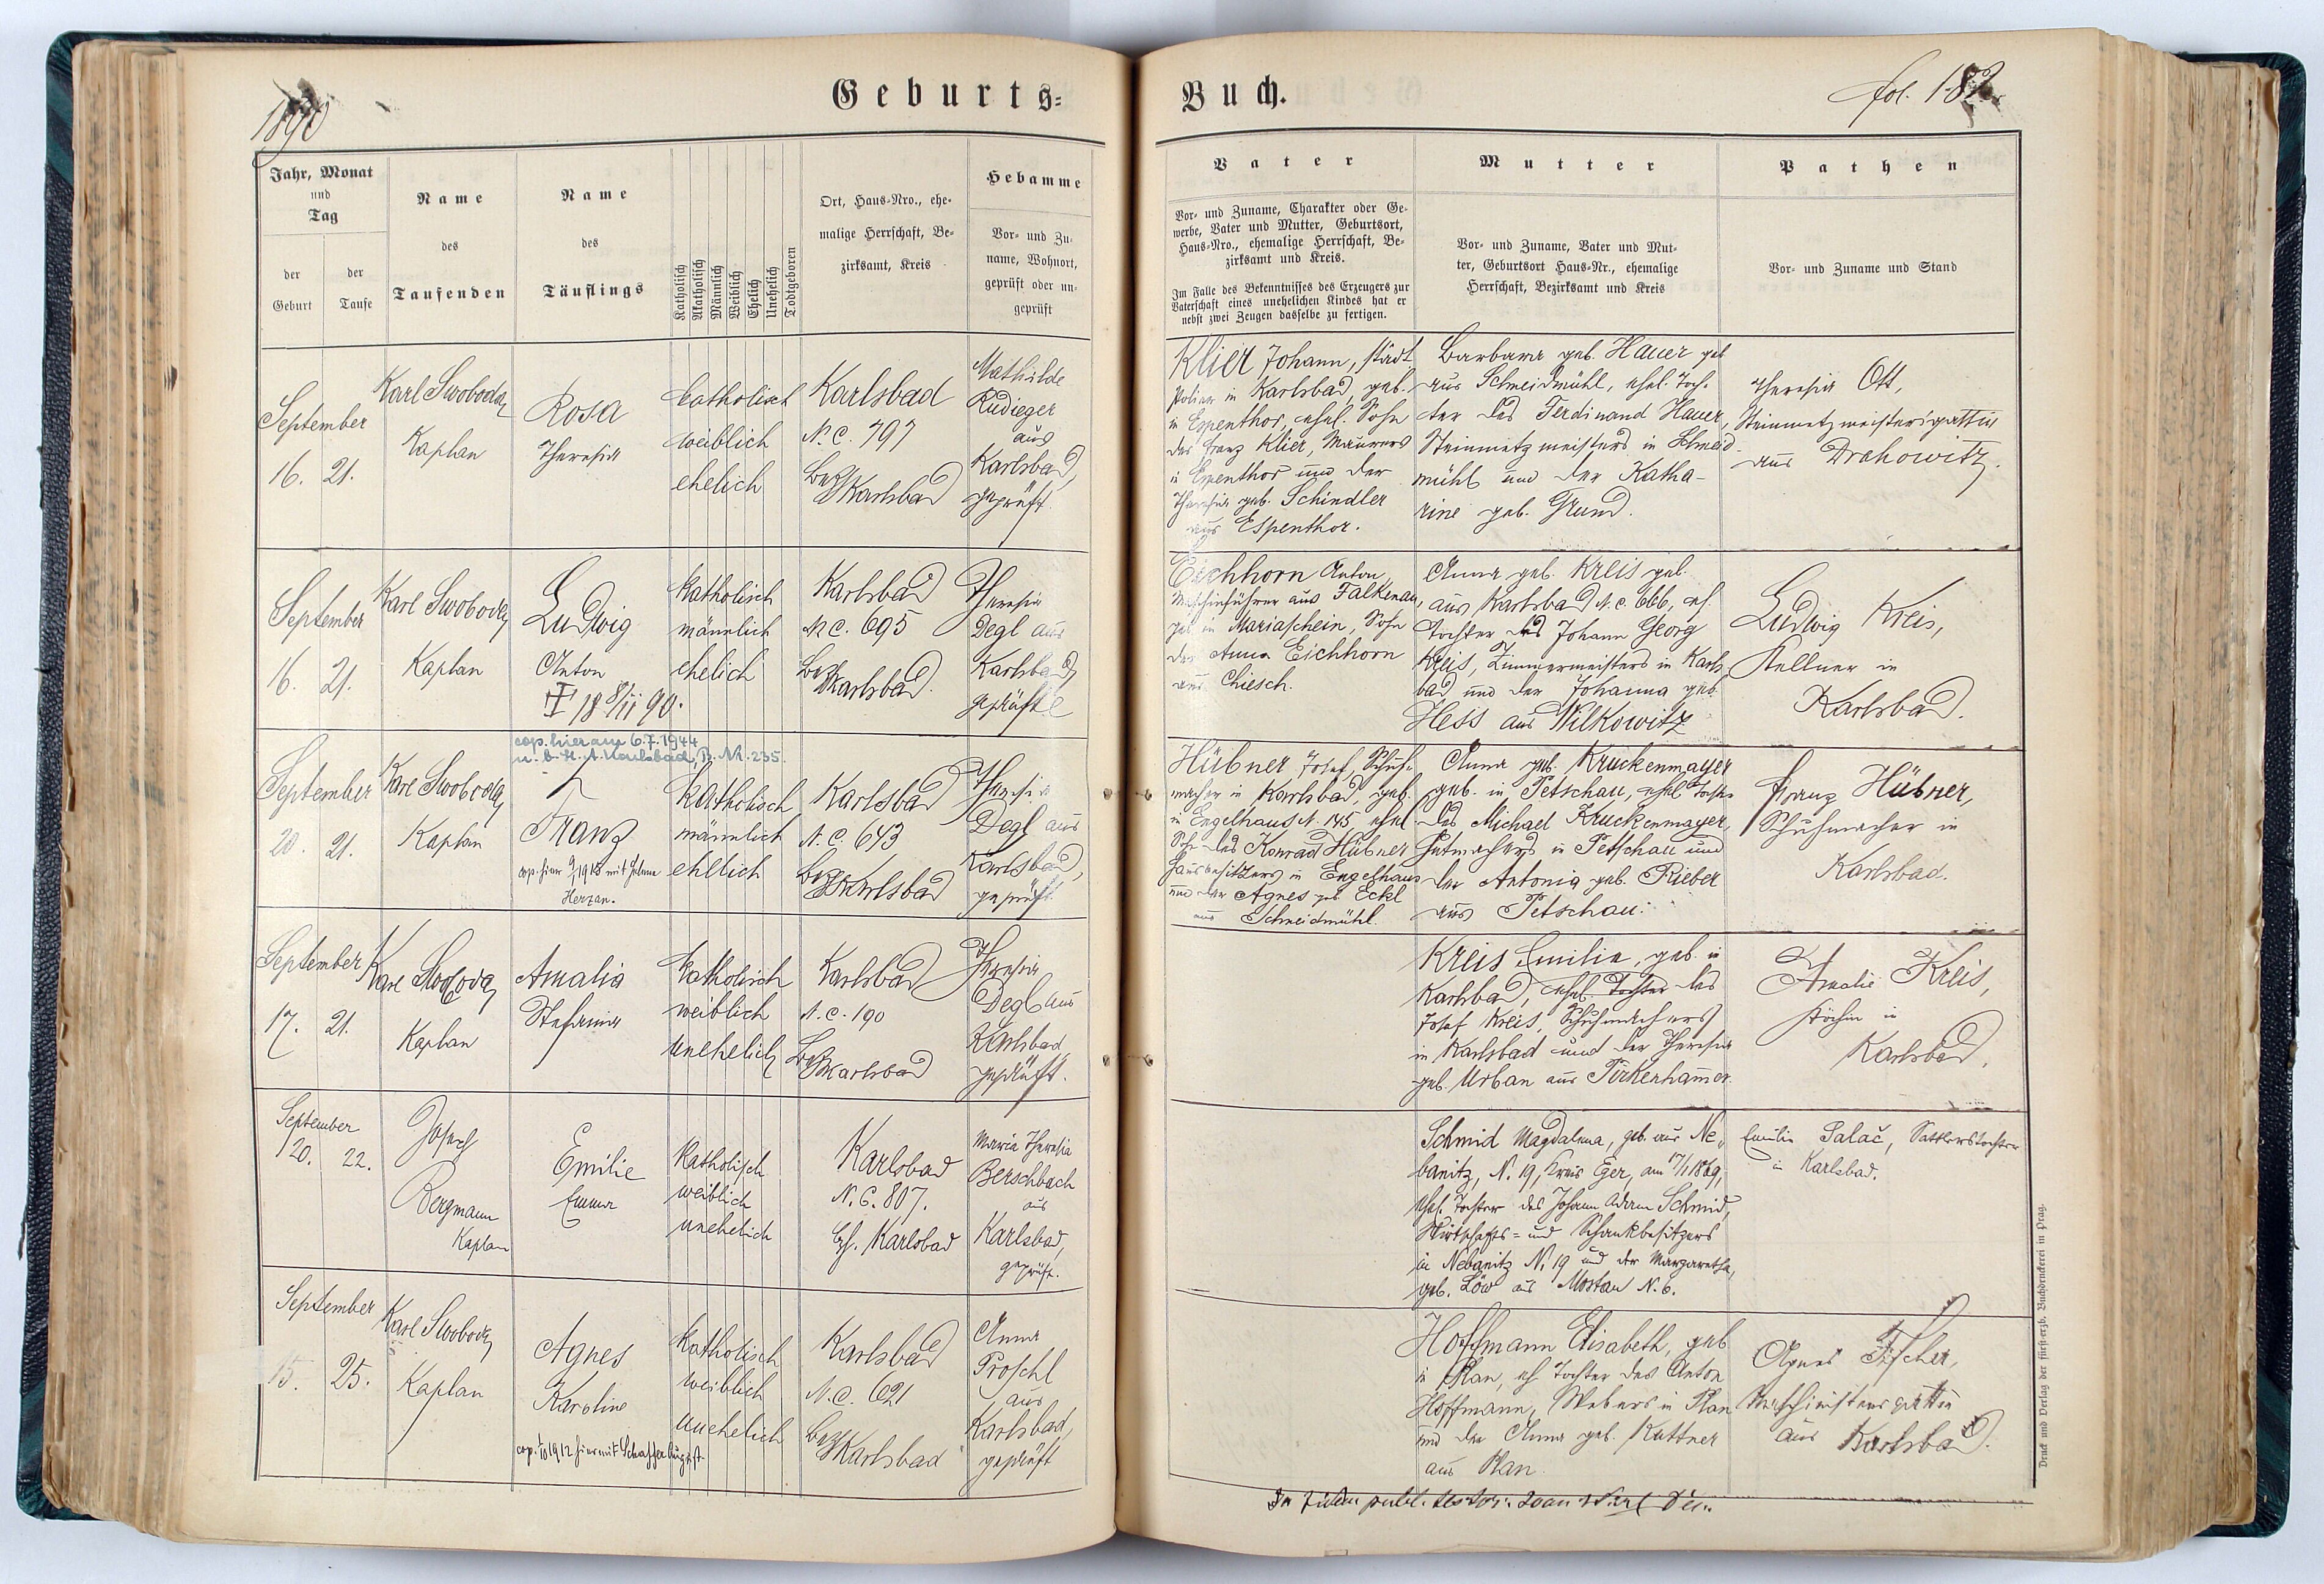 1890
Geburts-
Buch.
fol. 182.
Jahr, Monat
und
Tag
der
Geburt
der
Taufe
Name
des
Taufenden
Name
des
Täuflings
Katholisch
Akatholisch
Männlich
Weiblich
Ehelich
Unehelich
Todtgeboren
Ort, Haus-Nro., ehe-
malige Herrschaft, Be-
zirksamt, Kreis
Hebamme
Vor- und Zu-
name, Wohnort,
geprüft oder un-
geprüft
Vater
Vor- und Zuname, Charakter oder Ge-
werbe, Vater und Mutter, Geburtsort,
Haus-Nro., ehemalige Herrschaft, Be-
zirksamt und Kreis.
Im Falle des Bekenntnisses des Erzeugers zur
Vaterschaft eines unehelichen Kindes hat er
nebst zwei Zeugen dasselbe zu fertigen.
Mutter
Vor- und Zuname, Vater und Mut-
ter, Geburtsort Haus-Nr., ehemalige
Herrschaft, Bezirksamt und Kreis
Pathen
Vor- und Zuname und Stand
September
16. 21.
Karl Swoboda,
Kaplan
Rosa
Theresia
katholisch
weiblich
ehelich
Karlsbad
N. C. 797
Bez Karlsbad
Mathilde
Rudieger
aus
Karlsbad,
geprüft.
Klier Johann, städt
Polier in Karlsbad, geb.
in Espenthor, ehel. Sohn
des Franz Klier, Maurers
in Espenthor und der
Theresia geb. Schindler
aus Espenthor.
Barbara geb. Hauer geb
aus Schneidmühl, ehel. Toch-
ter des Ferdinand Hauer,
Steinmetzmeisters in Schneid-
mühl und der Katha-
rine geb. Grund.
Theresia Ott,
Steinmetzmeistersgattin
aus Drahowitz.
September
16. 21.
Karl Swoboda,
Kaplan
Ludwig
Anton
18 8/11 90.
katholisch
männlich
ehelich
Karlsbad
N C. 695
Bez Karlsbad.
Theresia
Degl aus
Karlsbad,
geprüft
Eichhorn Anton
Maschinführer aus Falkenau,
geb in Mariaschein, Sohn
der Anna Eichhorn
aus Chiesch.
Anna geb. Kreis geb.
aus Karlsbad N. C. 666, eh.
Tochter des Johann Georg
Kreis, Zimmermeisters in Karls-
bad und der Johanna geb.
Hess aus Wilkowitz
Ludwig Kreis,
Kellner in
Karlsbad.
cop. hier am 6.7.1944
u. b. St. A. Karlsbad, B. Nr. 235.
September
20. 21.
Karl Swoboda,
Kaplan
Franz
cop. hier 1918 mit Helene
Herzan.
katholisch
männlich
ehelich
Karlsbad
N. C. 643
Bez Karlsbad
Theresia
Degl aus
Karlsbad,
geprüft
Hübner, Josef, Schuh-
macher in Karlsbad, geb.
in Engelhaus N. 145 ehel.
Sohn des Konrad Hübner
Hausbesitzers in Engelhaus
und der Agnes geb. Eckl
aus Schneidmühl.
Anna geb. Kruckenmayer
geb. in Petschau, ehel Tochter
des Michael Kruckenmayer,
Hutmachers in Petschau und
der Antonia geb. Rieber
aus Petschau.
Franz Hübner,
Schuhmacher in
Karlsbad.
September
17. 21.
Karl Swoboda,
Kaplan
Amalia
Stefania
katholisch
weiblich
unehelich
Karlsbad
N. C. 190
Bez Karlsbad
Theresia
Degl aus
Karlsbad,
geprüft.
Kreis Emilie, geb. in
Karlsbad, ehel. Tochter des
Josef Kreis, Schuhmachers
in Karlsbad und der Theresia
geb. Urban aus Pirkenhammer.
Amalie Kreis,
Köchin in
Karlsbad.
September
20. 22.
Josef
Bergmann
Kaplan
Emilie
Emma
katholisch
weiblich
unehelich
Karlsbad
N. C. 807.
Bh. Karlsbad
Maria Theresia
Berschbach
aus
Karlsbad,
geprüft.
Schmid Magdalena, geb. aus Ne-
banitz, N. 19, Kreis Eger, am 17/1 1869,
ehel. Tochter des Johann Adam Schmid,
Wirtschafts- und Schankbesitzers
in Nebanitz N. 19 und der Margaretha,
geb. Löw aus Mostau N. 6.
Emilie Salač, Sattlerstochter
in Karlsbad.
September
15. 25.
Karl Swoboda,
Kaplan
Agnes
Karoline
katholisch
weiblich
unehelich
Karlsbad
N. C. 621
Bez Karlsbad
Anna
Proschl
aus
Karlsbad,
geprüft
Hoffmann Elisabeth, geb
in Plan, eh Tochter des Anton
Hoffmann, Webers in Plan
und der Anna geb. Kuttner
aus Plan.
Agnes Fischer,
Maschinistensgattin
aus Karlsbad.
Druck und Verlag der fürst-erzb. Buchdruckerei in Prag.